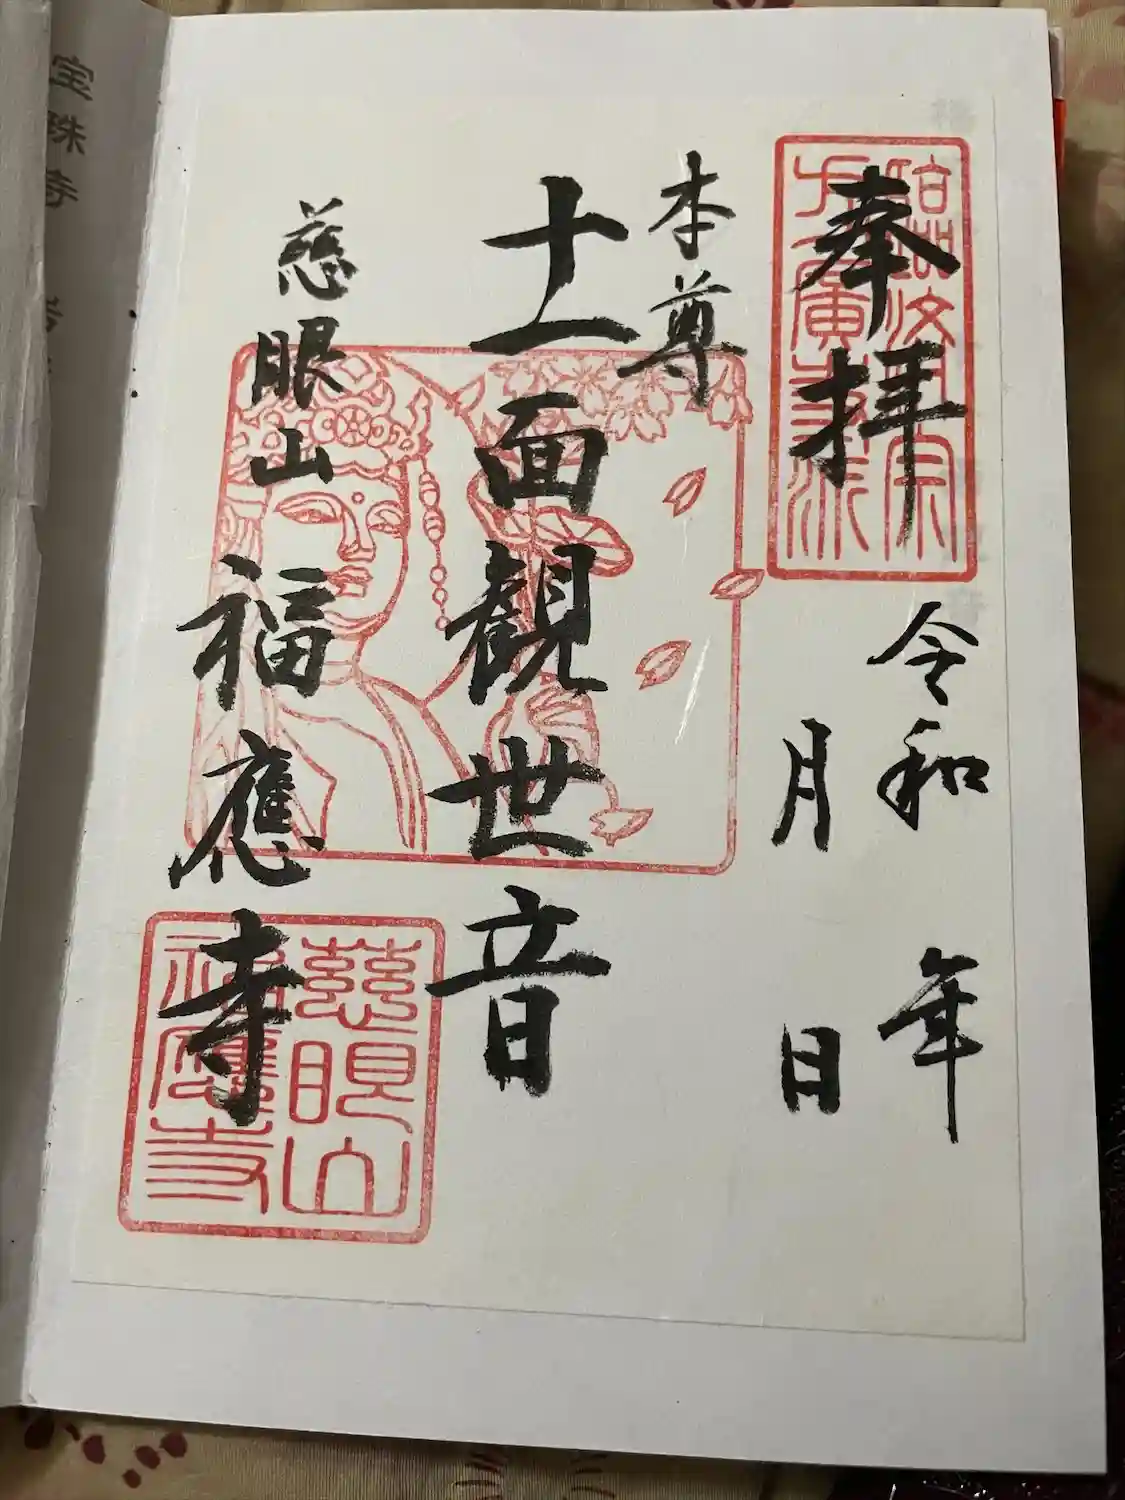 奉拝
臨済宗
方廣寺派
令和 年
月 日
本尊
十一面観世音
慈眼山
福應寺
慈眼山
福應寺
宝珠寺